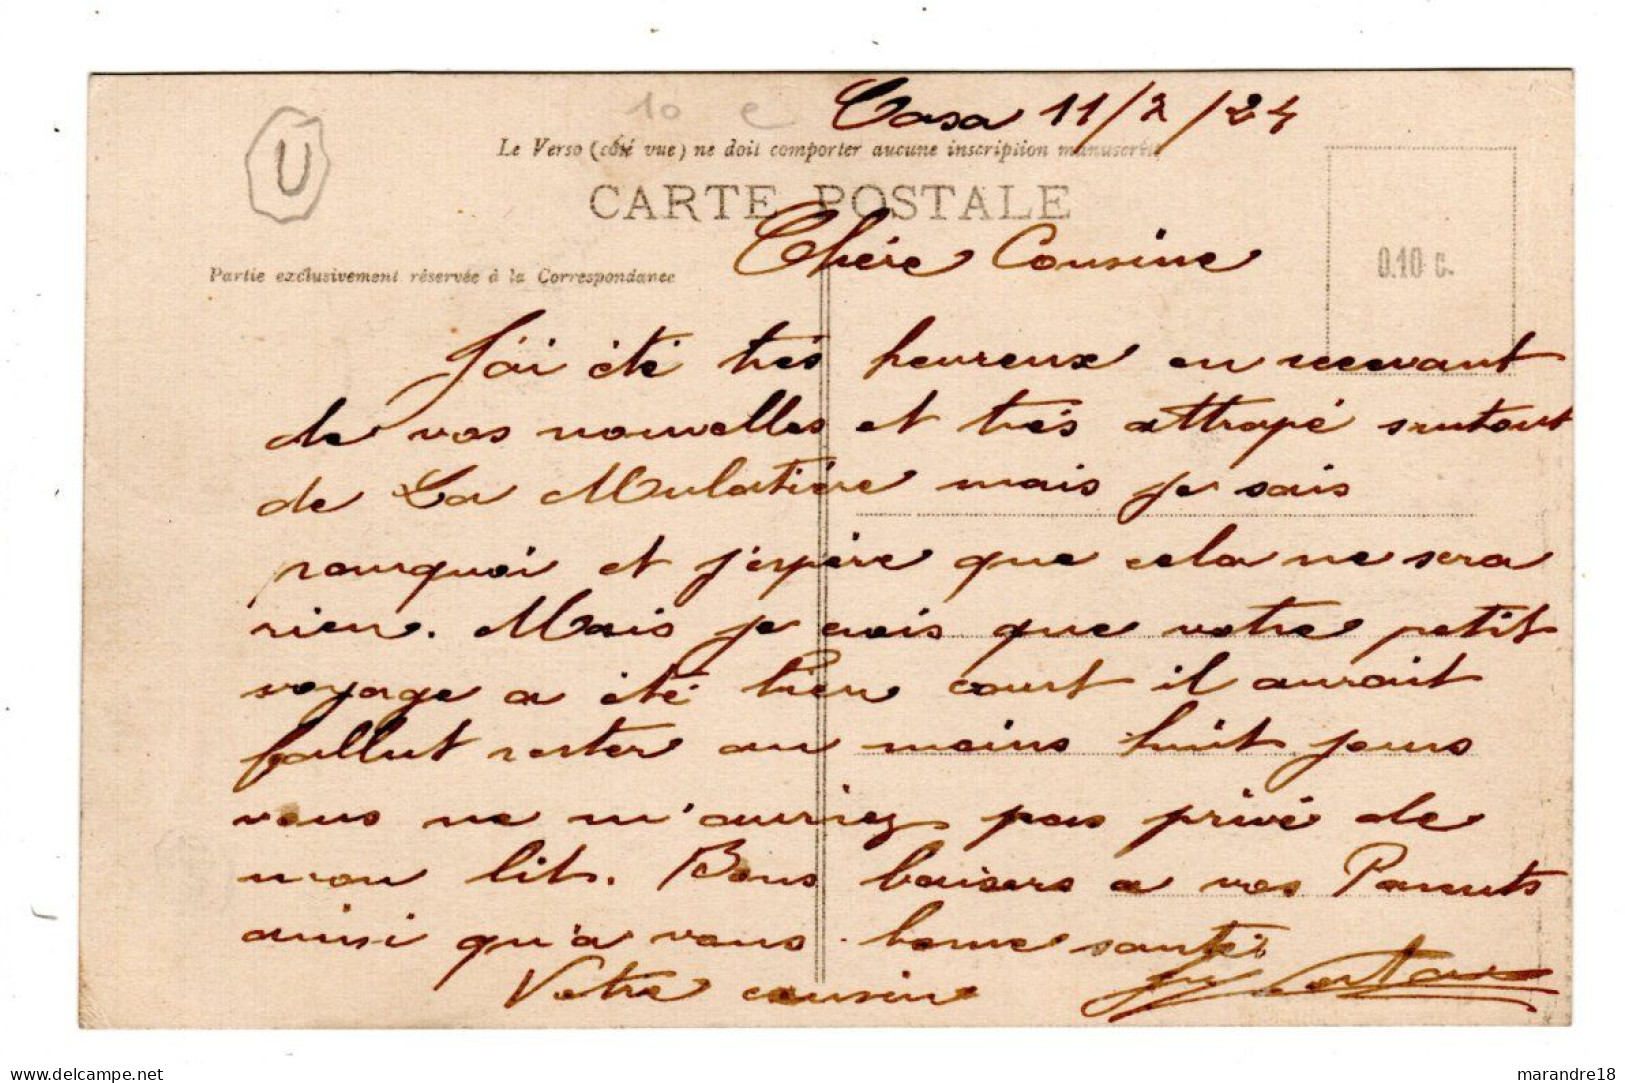 10 e
Casa 11/2/24
U
Le Verso (côté vue) ne doit comporter aucune inscription manuscrite
CARTE POSTALE
Partie exclusivement réservée à la Correspondance
0.10 c.
Chére Cousine
J'ai été trés heureux en recevant
de vos nouvelles et trés attrapé surtout
de La Mulatière mais je sais
pourquoi et j'espére que cela ne sera
rien. Mais je crois que votre petit
voyage a été bien court il aurait
fallut rester au moins huit jours
vous ne m'auriez pas privé de
mon lit. Bons baisers a vos Parents
ainsi qu'a vous bonne santé
Votre cousin
delcampe.net
marandre18